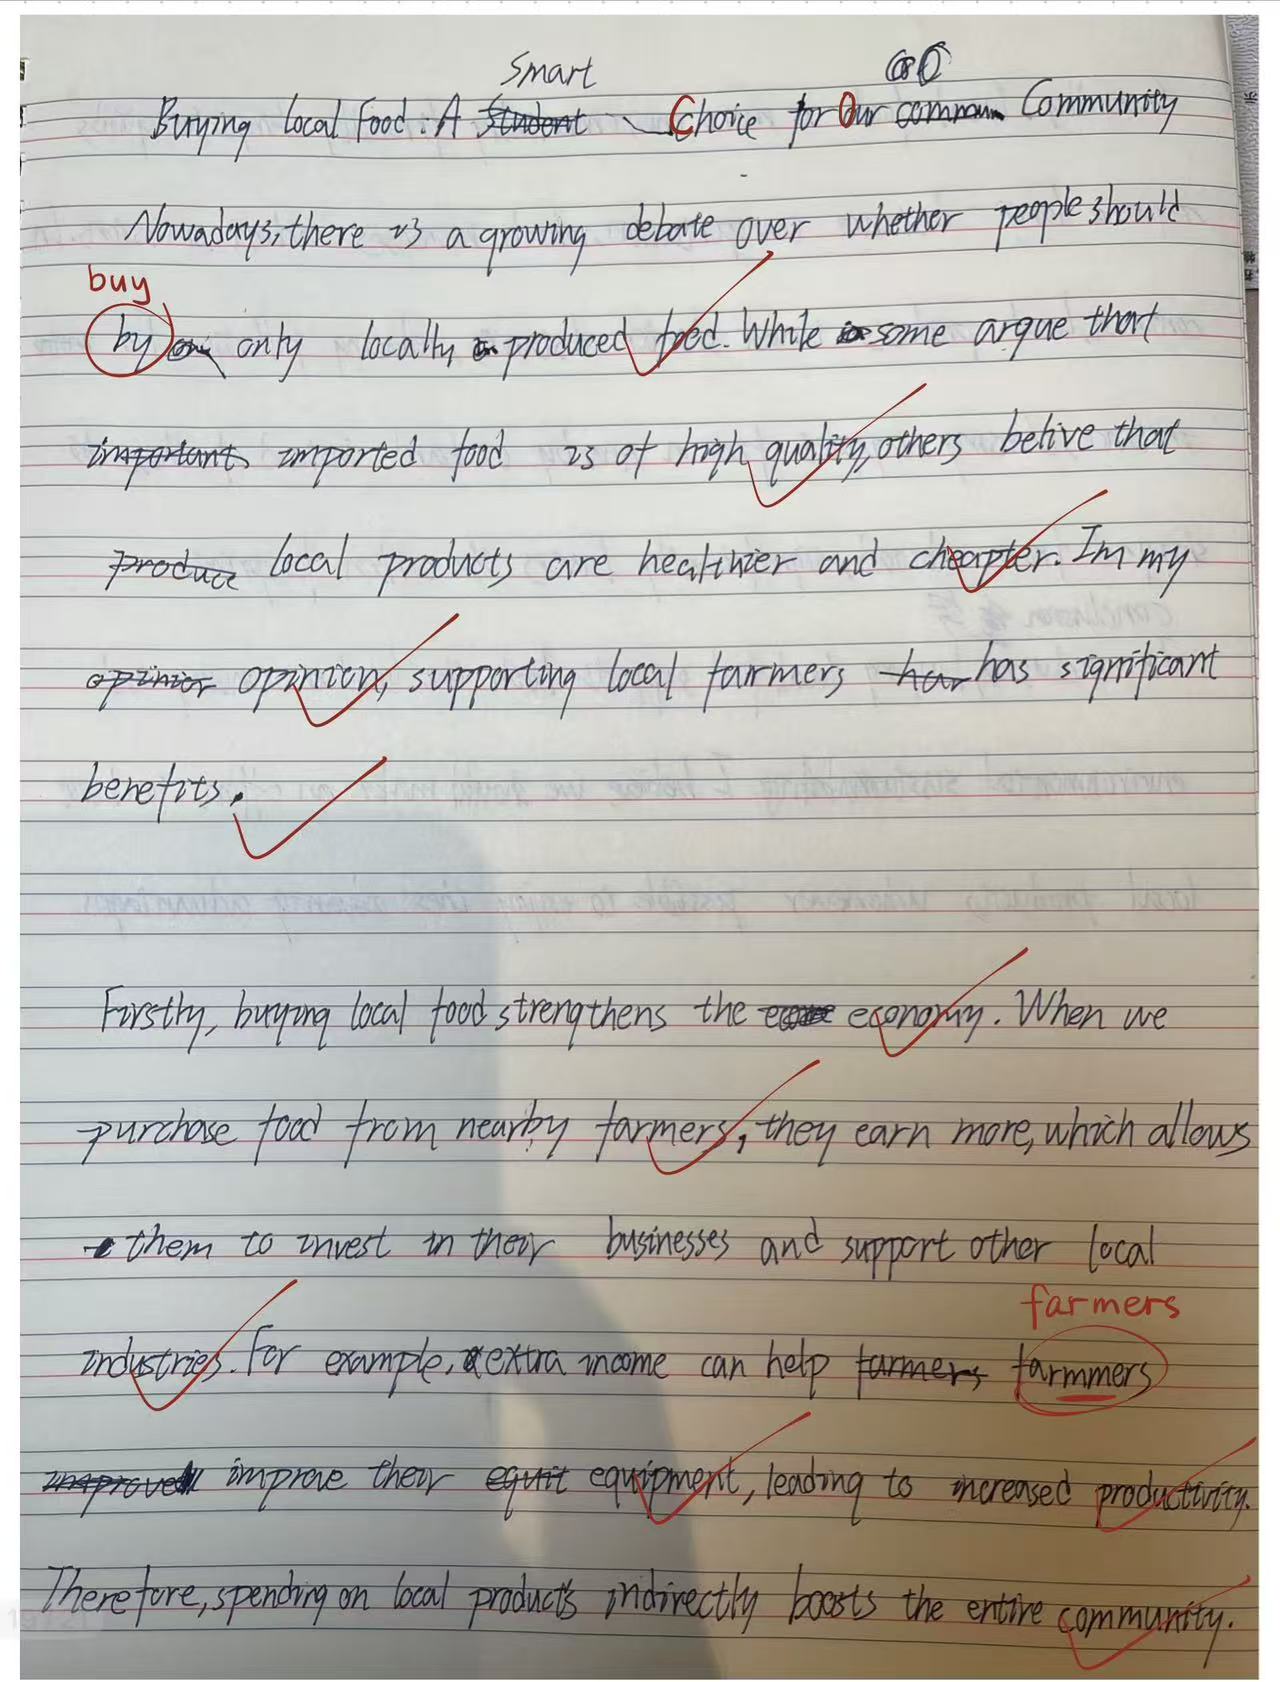 Smart
Buying local Food: A Student Choice for Our Community
Nowadays, there is a growing debate over whether people should
buy
by only locally produced food. While some argue that
important imported food is of high quality, others belive that
produce local products are healthier and cheapter. Im my
opinior opinion, supporting local farmers har has significant
benefits.
Firstly, buying local food strengthens the economy. When we
purchase food from nearby farmers, they earn more, which allows
them to invest in their businesses and support other local
farmers
industries. For example, extra income can help farmers farmmers
improve improve their equit equipment, leading to increased productivity.
Therefore, spending on local products indirectly boosts the entire community.